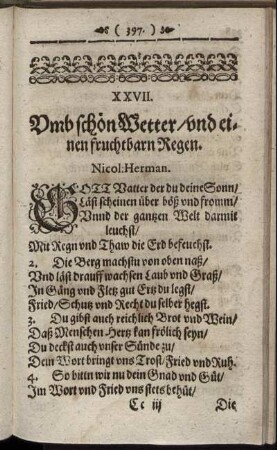 ( 397. )
XXVII.
Vmb schön Wetter/vnd ei-
nen fruchtbarn Regen.
Nicol: Herman.
GOTT Vatter der du deine Sonn/
Läst scheinen über böß vnd fromm/
Vnnd der gantzen Welt darmit
leuchst/
Mit Regn vnd Thaw die Erd befeuchst.
2. Die Berg machstu von oben naß/
Vnd läst drauff wachsen Laub vnd Graß/
In Gäng vnd Fletz gut Ertz du legst/
Fried/Schutz vnd Recht du selber hegst.
3. Du gibst auch reichlich Brot vnd Wein/
Daß Menschen Hertz kan frölich seyn/
Du deckst auch vnser Sünde zu/
Dein Wort bringt vns Trost/Fried vnd Ruh.
4. So bittn wir nu dein Gnad vnd Güt/
Im Wort vnd Fried vns stets behüt/
Cc iij Die